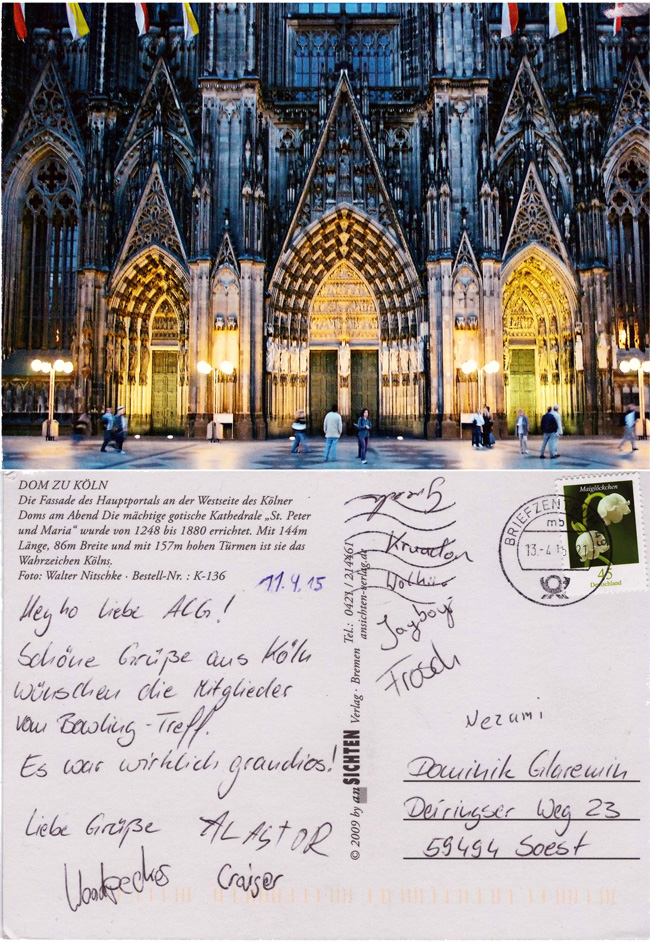 DOM ZU KÖLN
Die Fassade des Hauptportals an der Westseite des Kölner
Doms am Abend Die mächtige gotische Kathedrale „St. Peter
und Maria“ wurde von 1248 bis 1880 errichtet. Mit 144m
Länge, 86m Breite und mit 157m hohen Türmen ist sie das
Wahrzeichen Kölns.
Foto: Walter Nitschke · Bestell-Nr. : K-136
11.4.15
Hey ho liebe ACG!
Schöne Grüße aus Köln
wünschen die Mitglieder
vom Bowling-Treff.
Es war wirklich grandios!
Liebe Grüße
ALASTOR
Craiser
© 2009 by anSICHTEN Verlag · Bremen Tel.: 0421 / 214461
ansichten-verlag.de
Jayboyi
Frosch
Nezumi
BRIEFZEN
13.-4.15
Maiglöckchen
45
Deutschland
Dominik Glaremin
Deiringser Weg 23
59494 Soest